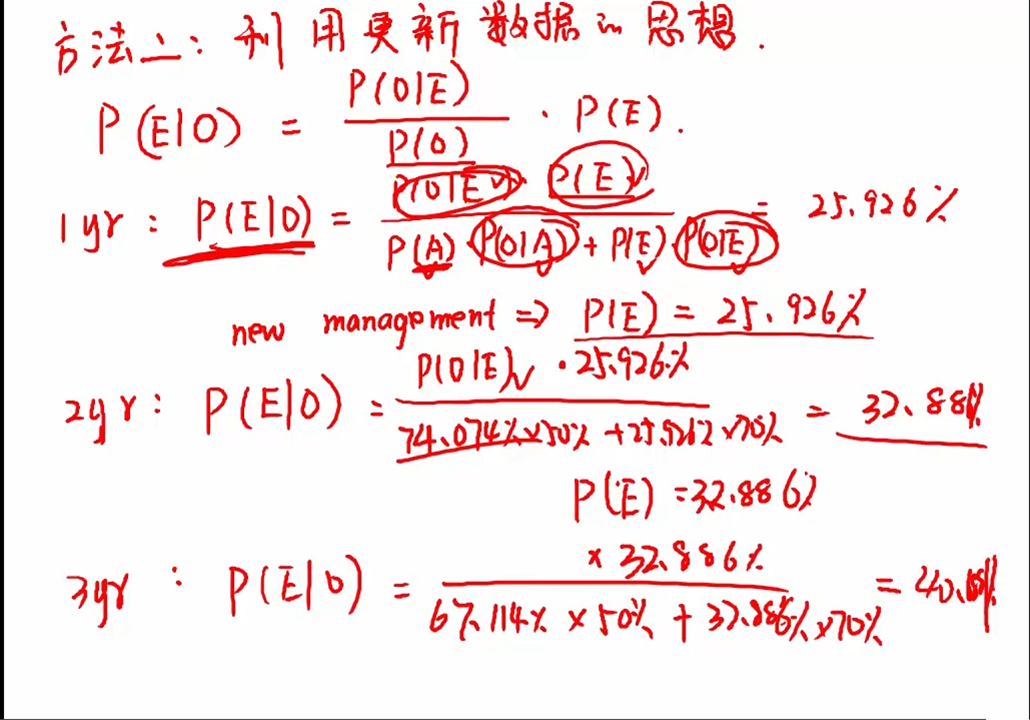 方法二: 利用更新数据的思想.
P(E|O) = P(O|E) / P(O) · P(E).
1yr: P(E|O) = P(O|E) P(E) / P(A)·P(O|A) + P(E)·P(O|E) = 25.926%
new management => P(E) = 25.926%
2yr: P(E|O) = P(O|E) · 25.926% / 74.074%×50% + 25.926%×70% = 32.88%
P(E) = 32.886%
3yr: P(E|O) = × 32.886% / 67.114% × 50% + 32.886%×70% =